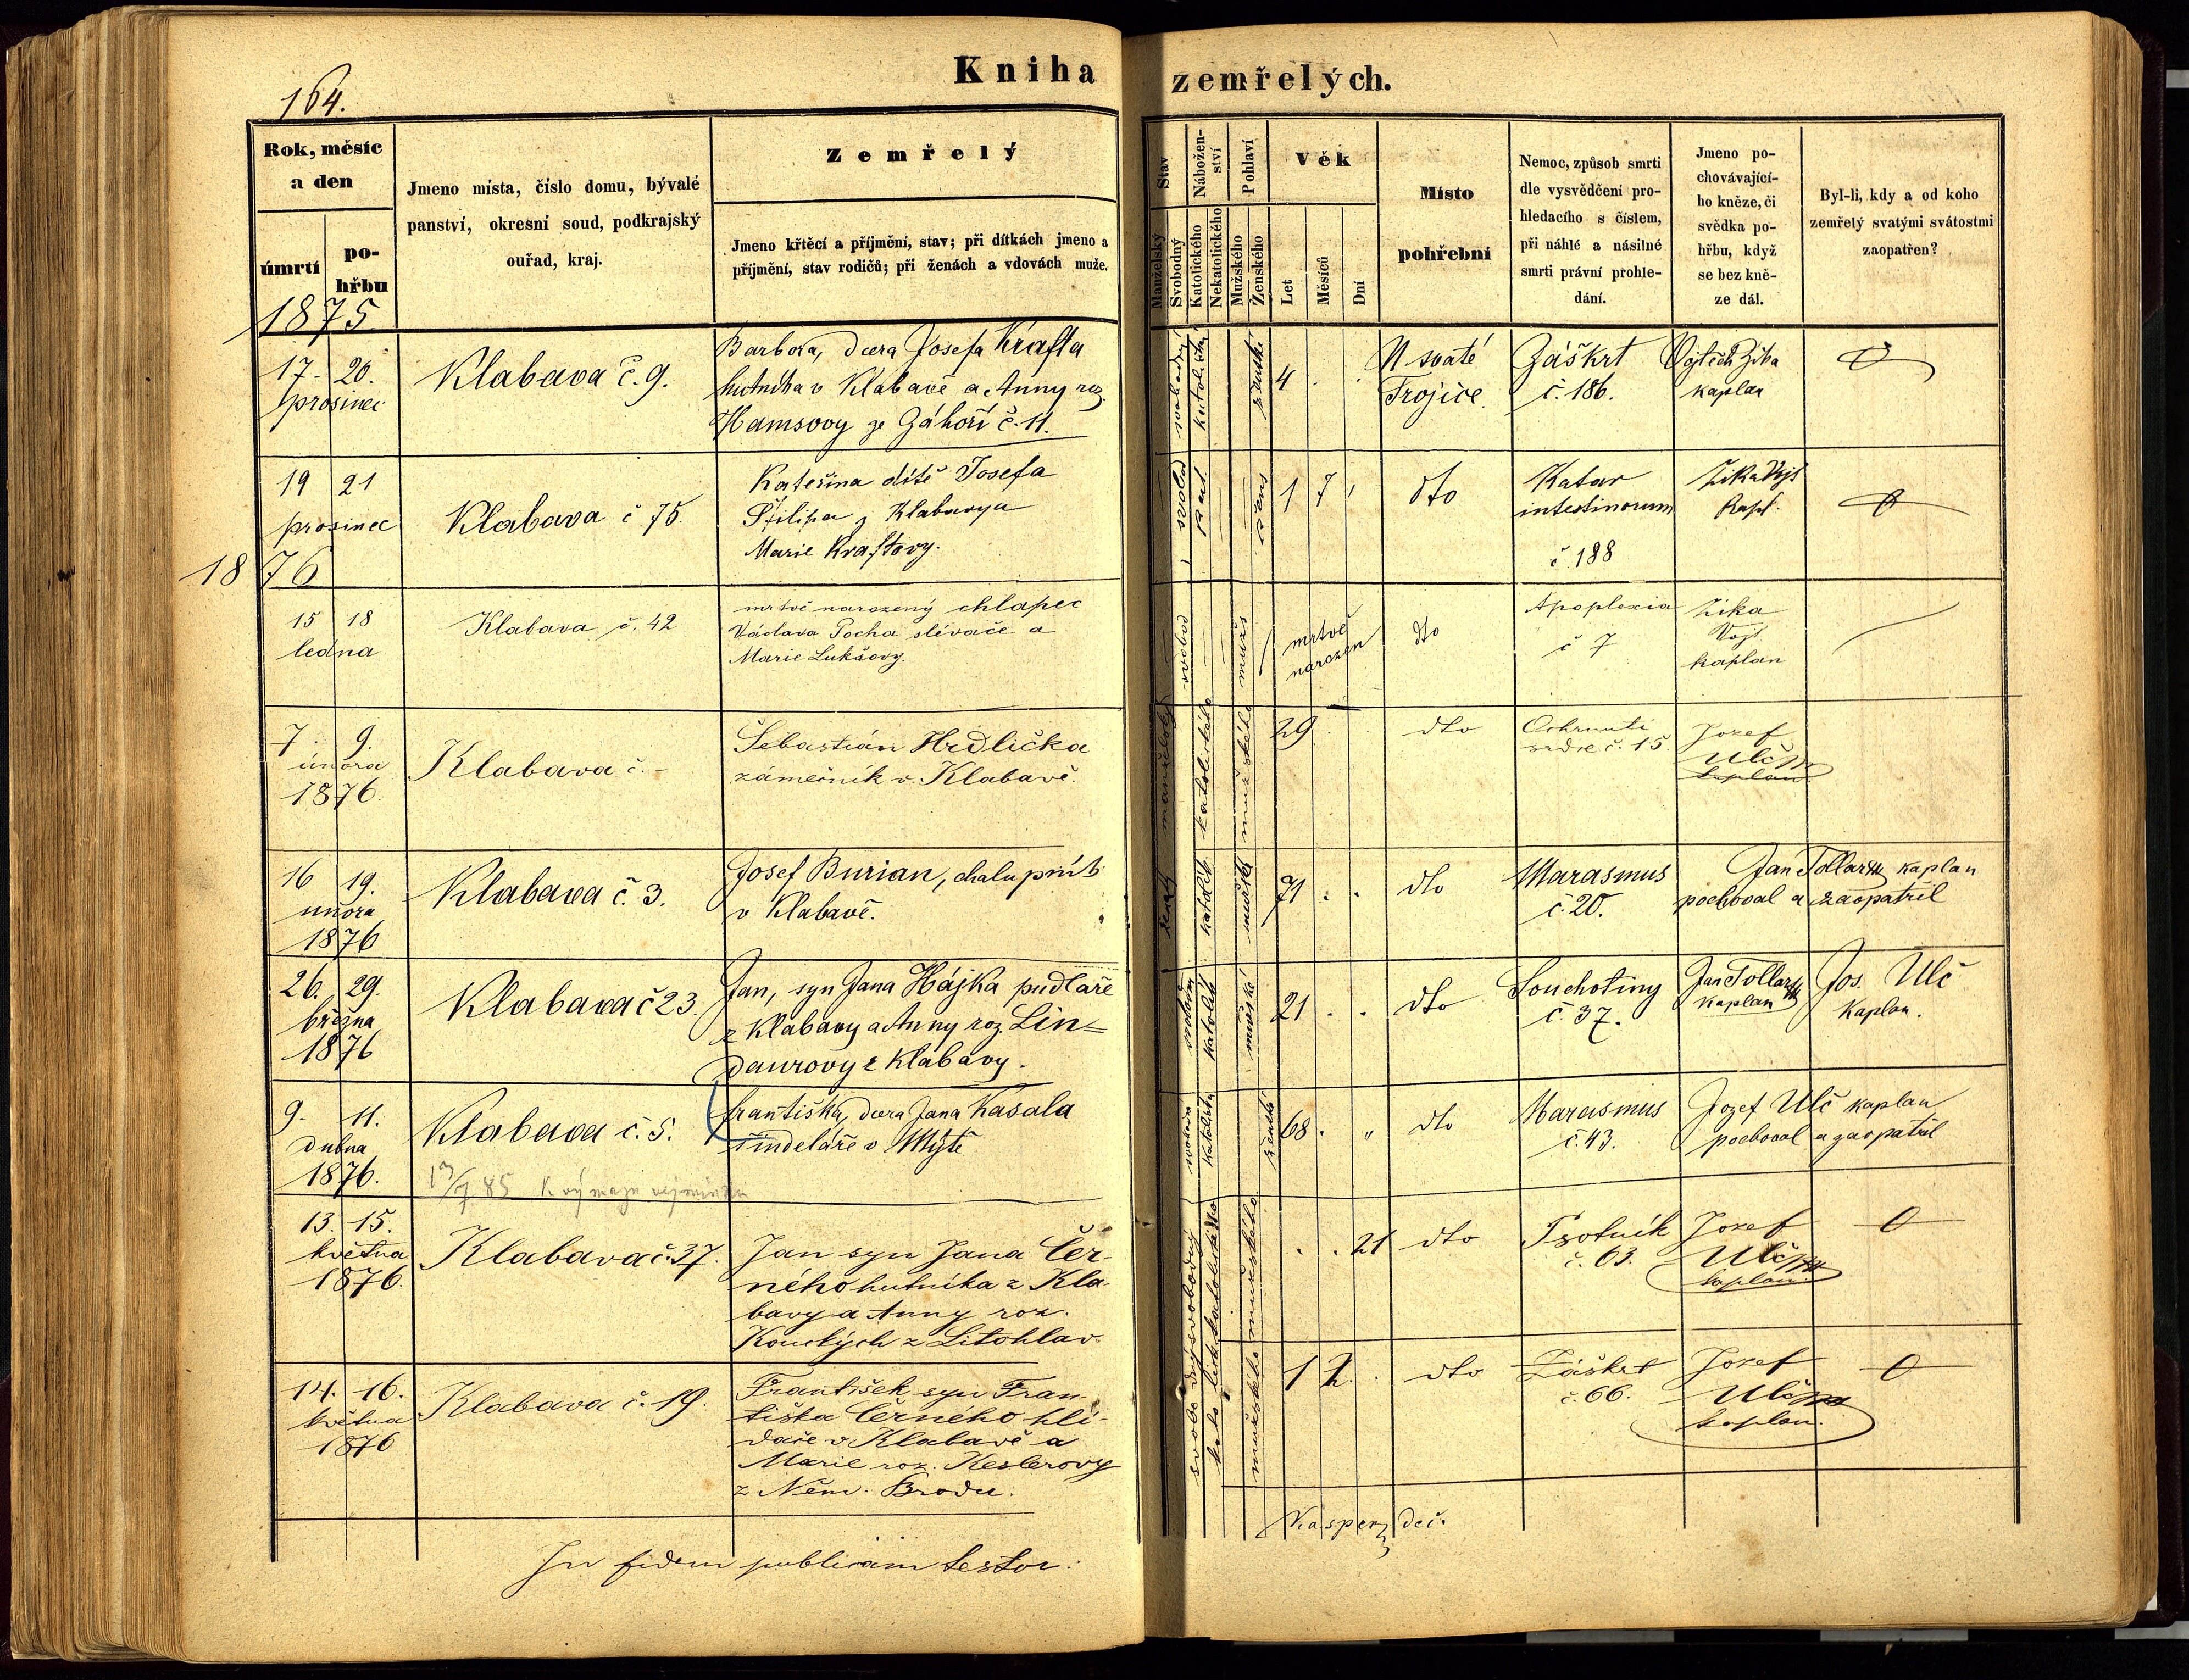 164.
Kniha zemřelých.
Rok, měsíc
a den
úmrtí
po-
hřbu
Jmeno místa, číslo domu, bývalé
panství, okresní soud, podkrajský
ouřad, kraj.
Zemřelý
Jmeno křtěcí a příjmění, stav; při dítkách jmeno a
příjmění, stav rodičů; při ženách a vdovách muže.
Stav
Manželský
Svobodný
Nábožen-
ství
Katolického
Nekatolického
Pohlaví
Mužského
Ženského
Věk
Let
Měsíců
Dní
Místo
pohřební
Nemoc, způsob smrti
dle vysvědčení pro-
hledacího s číslem,
při náhlé a násilné
smrti právní prohle-
dání.
Jmeno po-
chovávající-
ho kněze, či
svědka po-
hřbu, když
se bez kně-
ze dál.
Byl-li, kdy a od koho
zemřelý svatými svátostmi
zaopatřen?
1875.
17. 20.
prosinec
Klabava č. 9.
Barbora, dcera Josefa Krafta
hutníka v Klabavě a Anny roz.
Hamsovy ze Záhoří č. 11.
4 . .
U svaté
Trojice.
Záškrt
č. 186.
Vojtěch Zika
kaplan
19 21
prosinec
Klabava č 75.
Kateřina dítě Josefa
Filipa z Klabavy a
Marie Kraftovy.
1 7
dto
Katar
intestinorum
č. 188
Zika Vojt
Kapl.
1876
15 18
ledna
Klabava č. 42
mrtvě narozený chlapec
Václava Pocha slévače a
Marie Lukšovy.
svobod
mužs
mrtvě
narozen
dto
Apoplexia
č 7
Zika
Vojt
kaplan
7. 9.
února
1876.
Klabava č. -
Šebastián Hrdlička
zámečník v. Klabavě.
manželský
katolického
mužského
29
dto
Ochrnutí
srdce č. 15.
Jozef
Ulč
kaplan
16 19.
února
1876
Klabava č. 3.
Josef Burian, chalupník
v Klabavě.
ženat
katolík
mužský
71 . .
dto
Marasmus
č. 20.
Jan Tollar kaplan
pochoval a zaopatřil
26. 29.
března
1876
Klabava č 23.
Jan, syn Jana Hájka pudlaře
z Klabavy a Anny roz. Lin=
daurovy z Klabavy.
katolík
mužské
21 . .
dto
Souchotiny
č. 37.
Jan Tollar
kaplan
Jos. Ulč
kaplan.
9. 11.
dubna
1876.
Klabava č. 5.
Františka, dcera Jana Kasala
šindeláře v Mýtě
ženské
68 . "
dto
Marasmus
č. 43.
Jozef Ulč kaplan
pochoval a zaopatřil
13. 15.
května
1876.
Klabava č. 37.
Jan syn Jana Čer-
ného hutníka z Kla-
bavy a Anny roz.
Kouckých z Litohlav.
svobodný
katolického
mužského
. . 21
dto
Psotník
č. 63.
Jozef
Ulč
kaplan
14. 16.
května
1876
Klabava č. 19.
František syn Fran-
tiška Černého hlí-
dače v Klabavě a
Marie roz. Keslerovy
z Něm. Brodu.
mužského
1 2 .
dto
Záškrt
č. 66.
Jozef
Ulč
kaplan.
In fidem publicam testor:
Kasper děč.